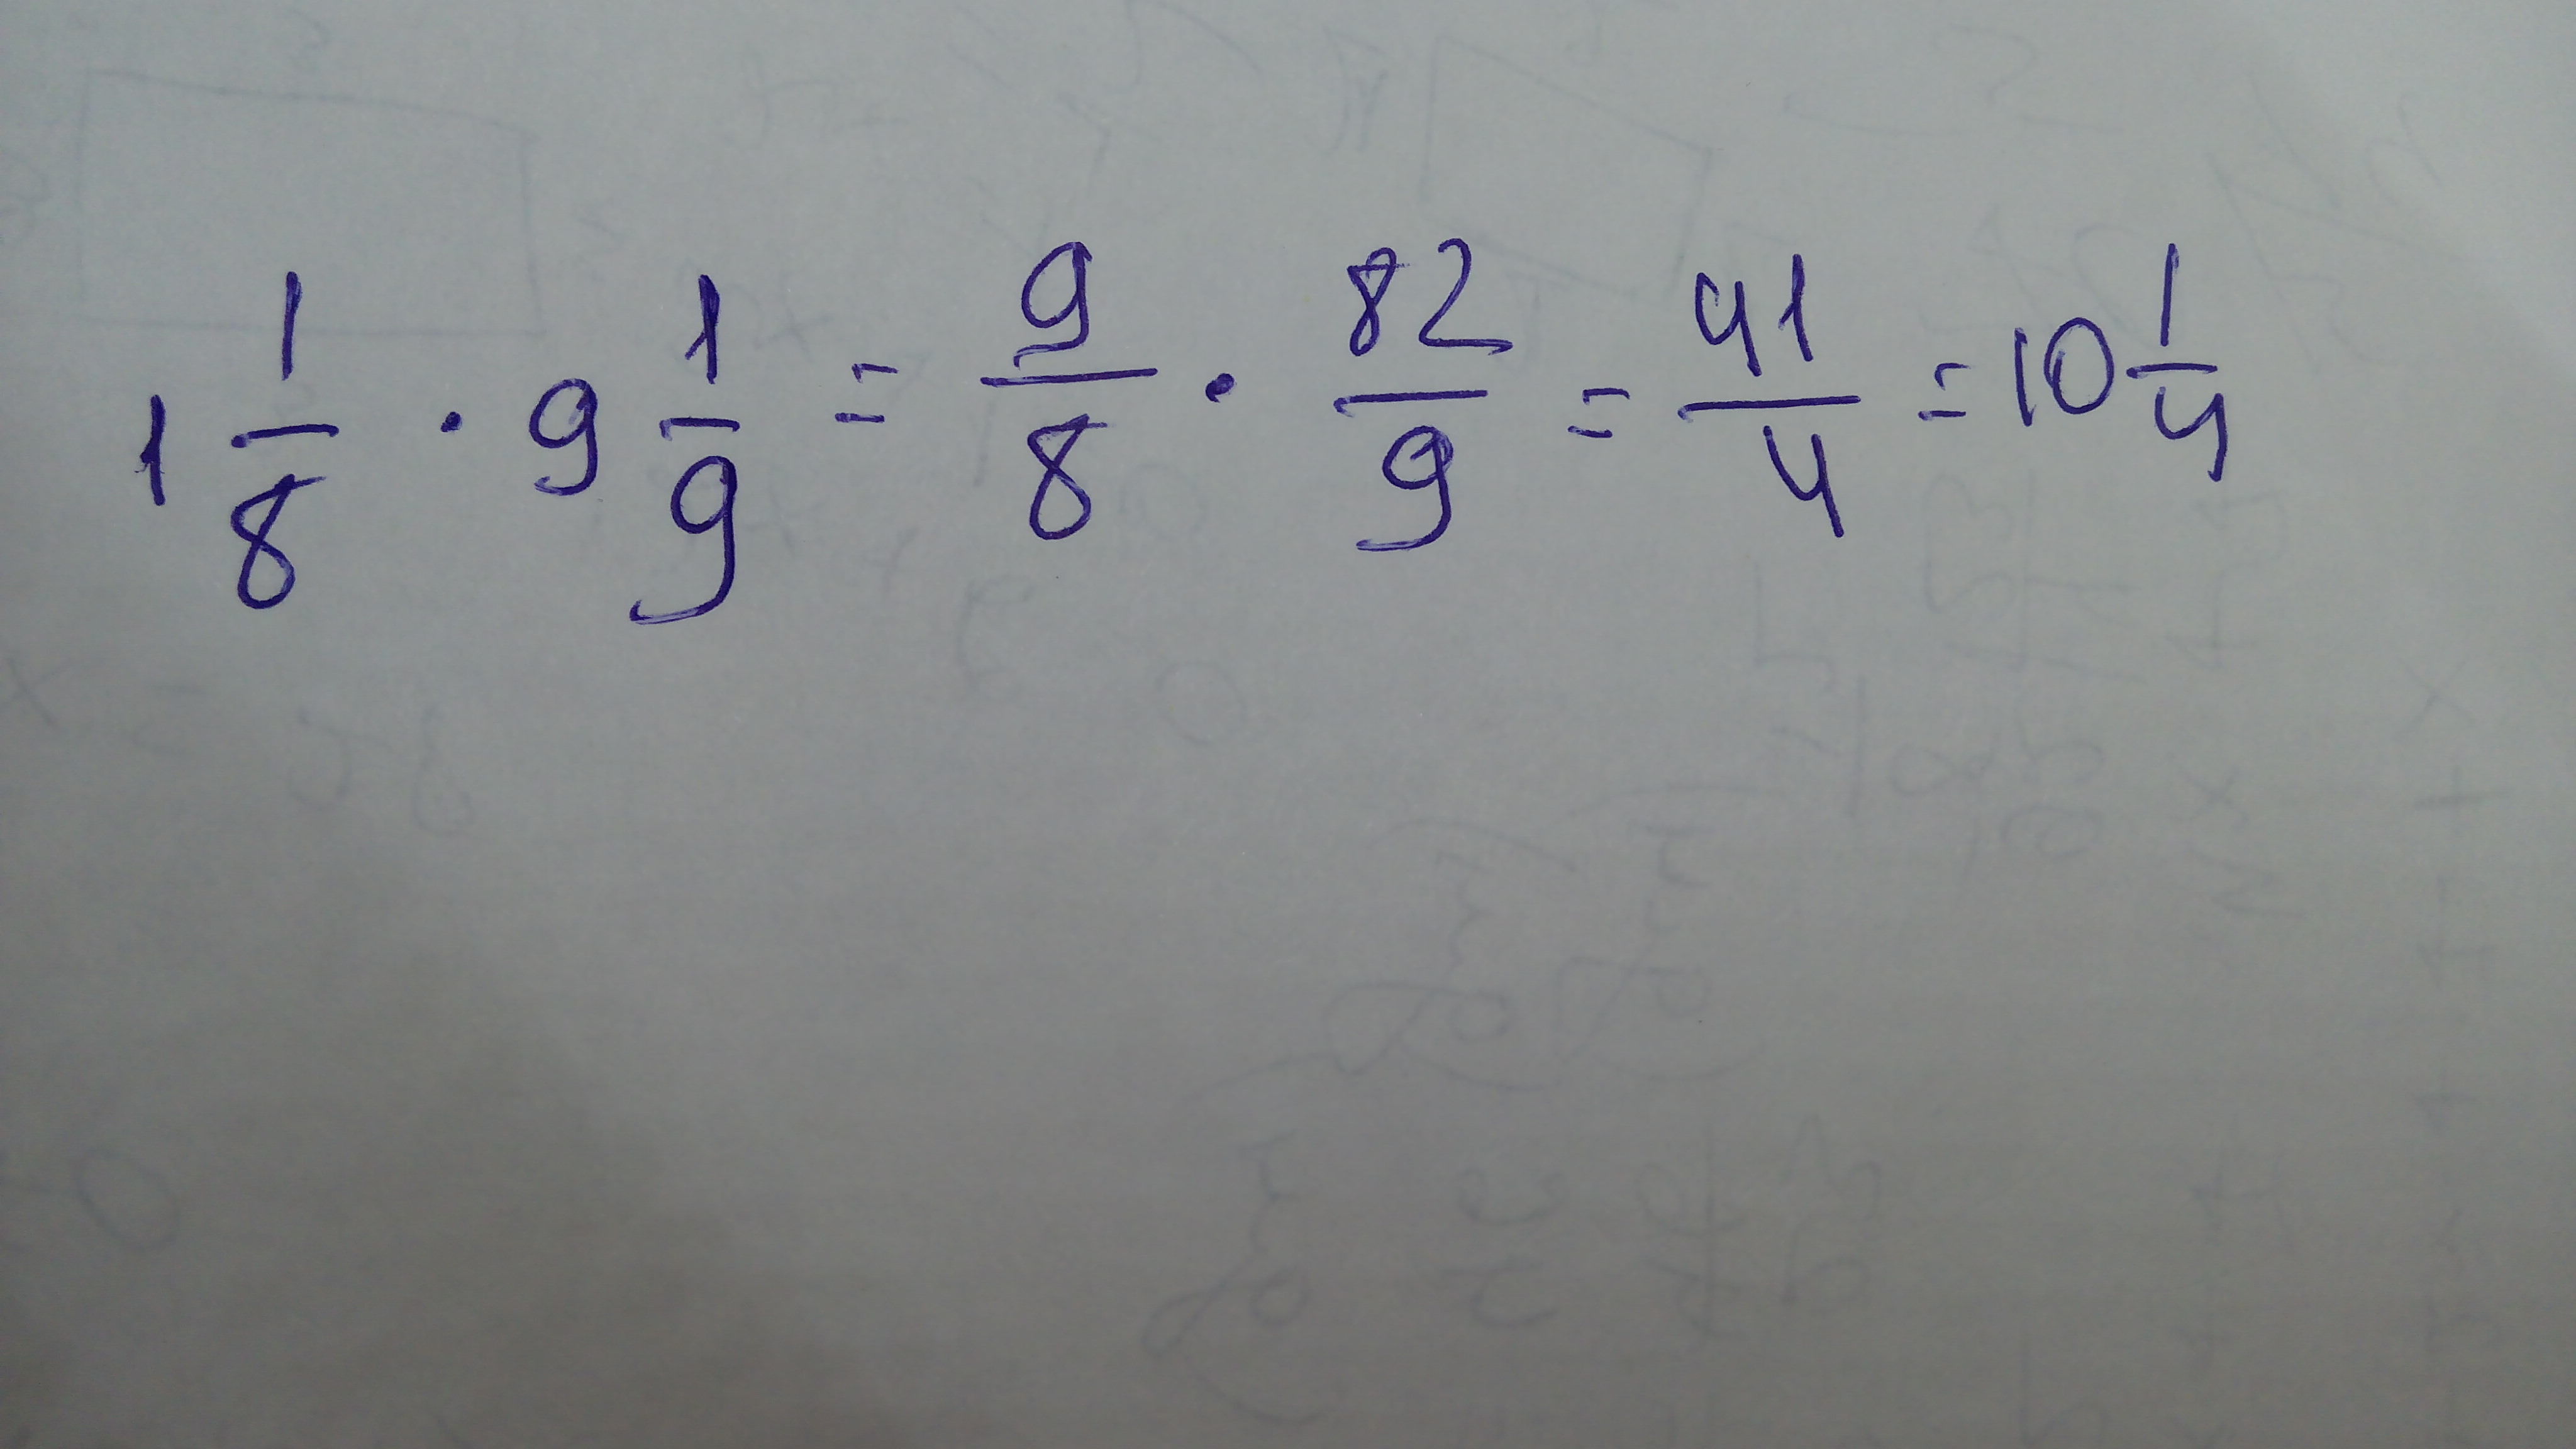 1 1/8 · 9 1/9 = 9/8 · 82/9 = 41/4 = 10 1/4